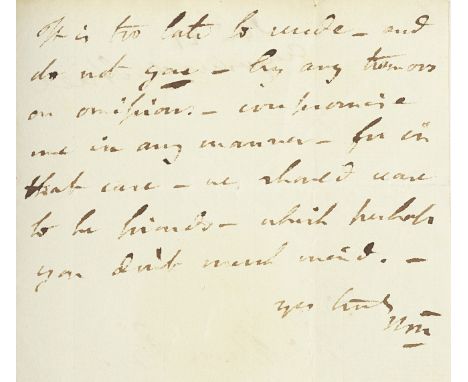 It is too late to recede – and
do not you – by any tremors
or omission. – compromise
me in any manner – for in
that case – we should cease
to be friends – which perhaps
you don't much mind. –
yrs truly